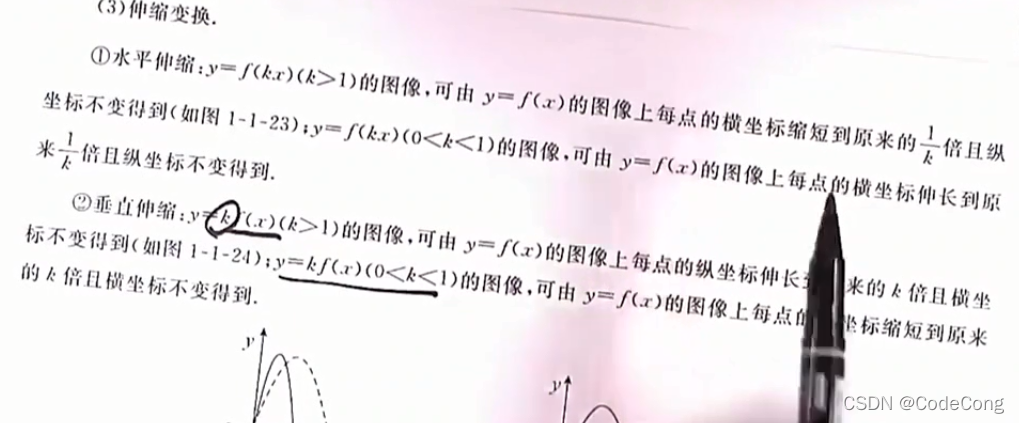 (3)伸缩变换.
①水平伸缩:y=f(kx)(k>1)的图像,可由 y=f(x)的图像上每点的横坐标缩短到原来的1/k倍且纵
坐标不变得到(如图 1-1-23);y=f(kx)(0<k<1)的图像,可由 y=f(x)的图像上每点的横坐标伸长到原
来1/k倍且纵坐标不变得到.
②垂直伸缩:y=k (x)(k>1)的图像,可由 y=f(x)的图像上每点的纵坐标伸长 来的 k 倍且横坐
标不变得到(如图 1-1-24);y=kf(x)(0<k<1)的图像,可由 y=f(x)的图像上每点 坐标缩短到原来
的 k 倍且横坐标不变得到.
y
y
CSDN @CodeCong